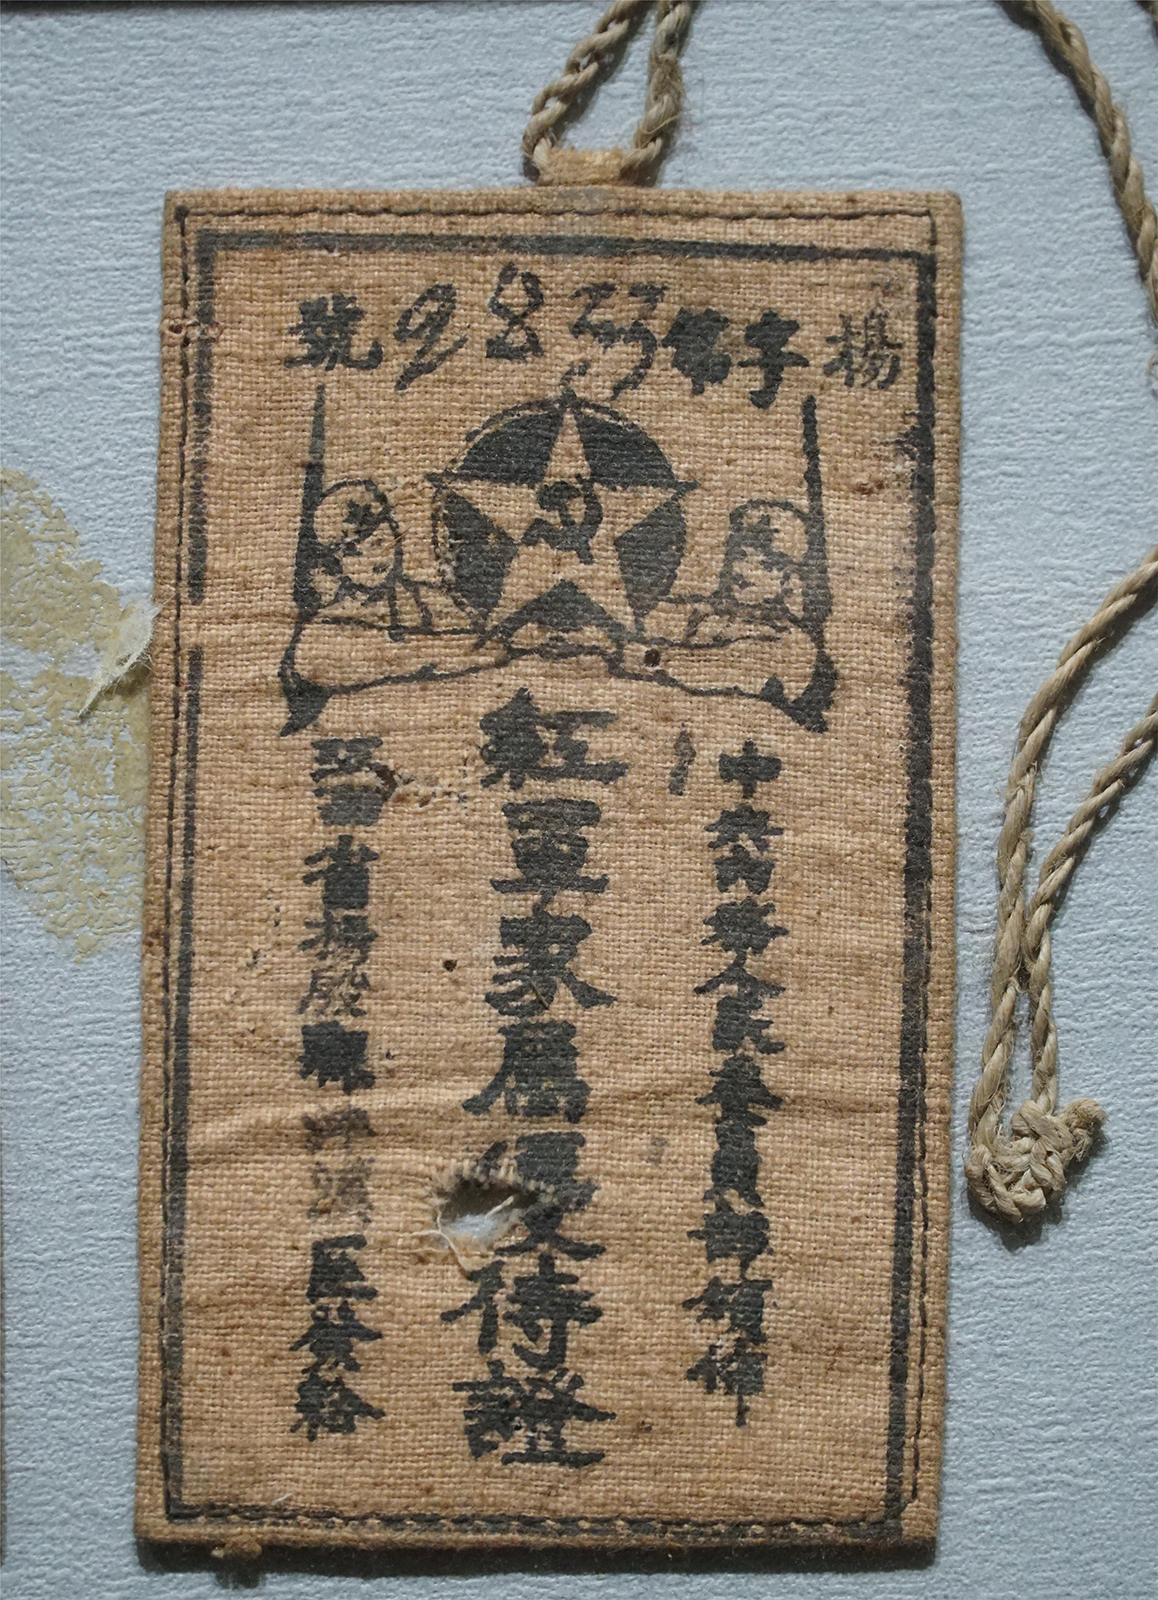 楊字第號
中央內務人民委員部頒佈
紅軍家屬優待證
江西省楊殷縣區發給